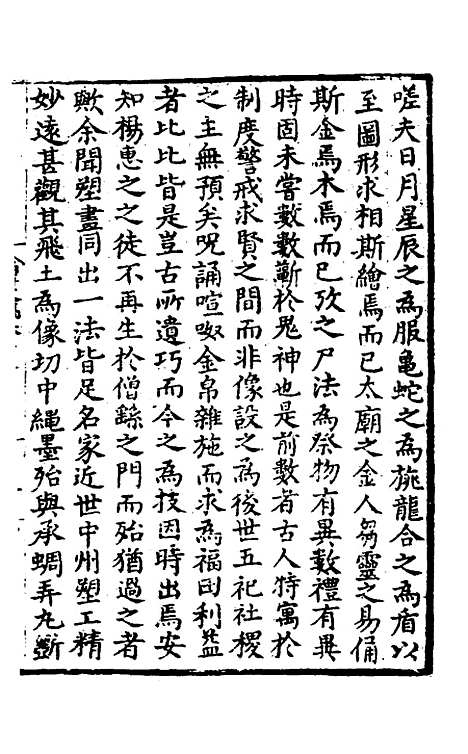 嗟夫日月星辰之為服龜蛇之為旐龍合之為盾以
至圖形求相斯繪焉而已太廟之金人芻靈之易俑
斯金焉木焉而已攷之尸法為祭物有異數禮有異
時固未嘗數數蘄於鬼神也是前數者古人特寓於
制度警戒求賢之間而非像設之為後世五祀社稷
之主無預矣呪誦喧呶金帛雜施而求為福田利益
者比比皆是豈古所遺巧而今之為技因時出焉安
知楊惠之之徒不再生於僧繇之門而殆猶過之者
歟余聞塑畫同出一法皆足名家近世中州塑工精
妙遠甚觀其飛土為像切中繩墨殆與承蜩弄丸斵